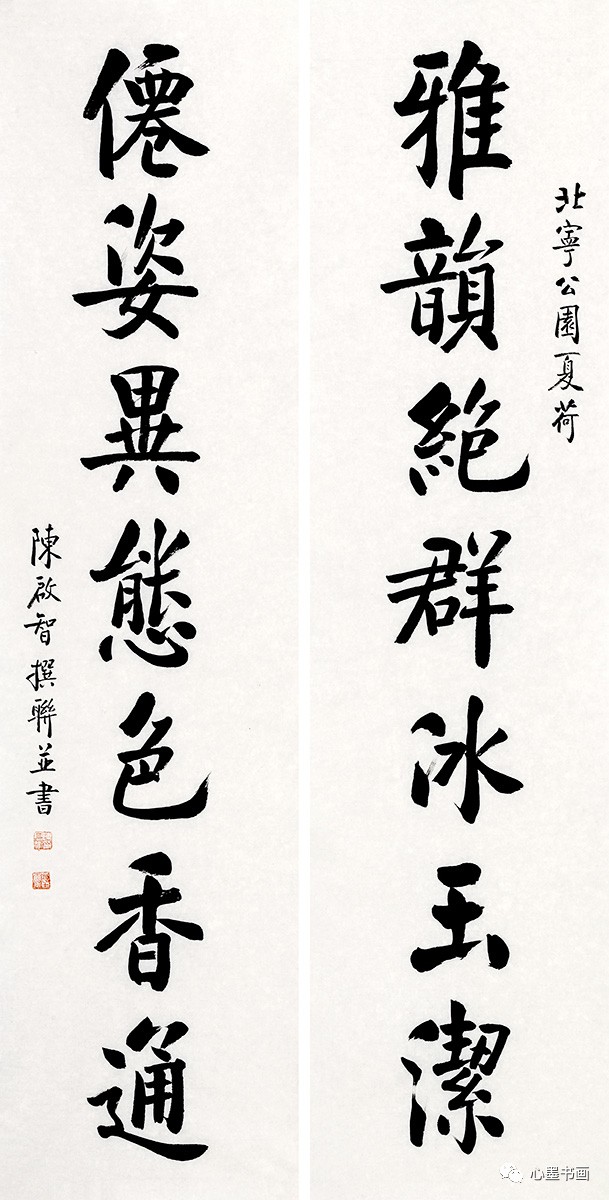 北寧公園夏荷
雅韻絶群冰玉潔
僊姿異態色香通
陳啟智撰聯並書
心墨书画